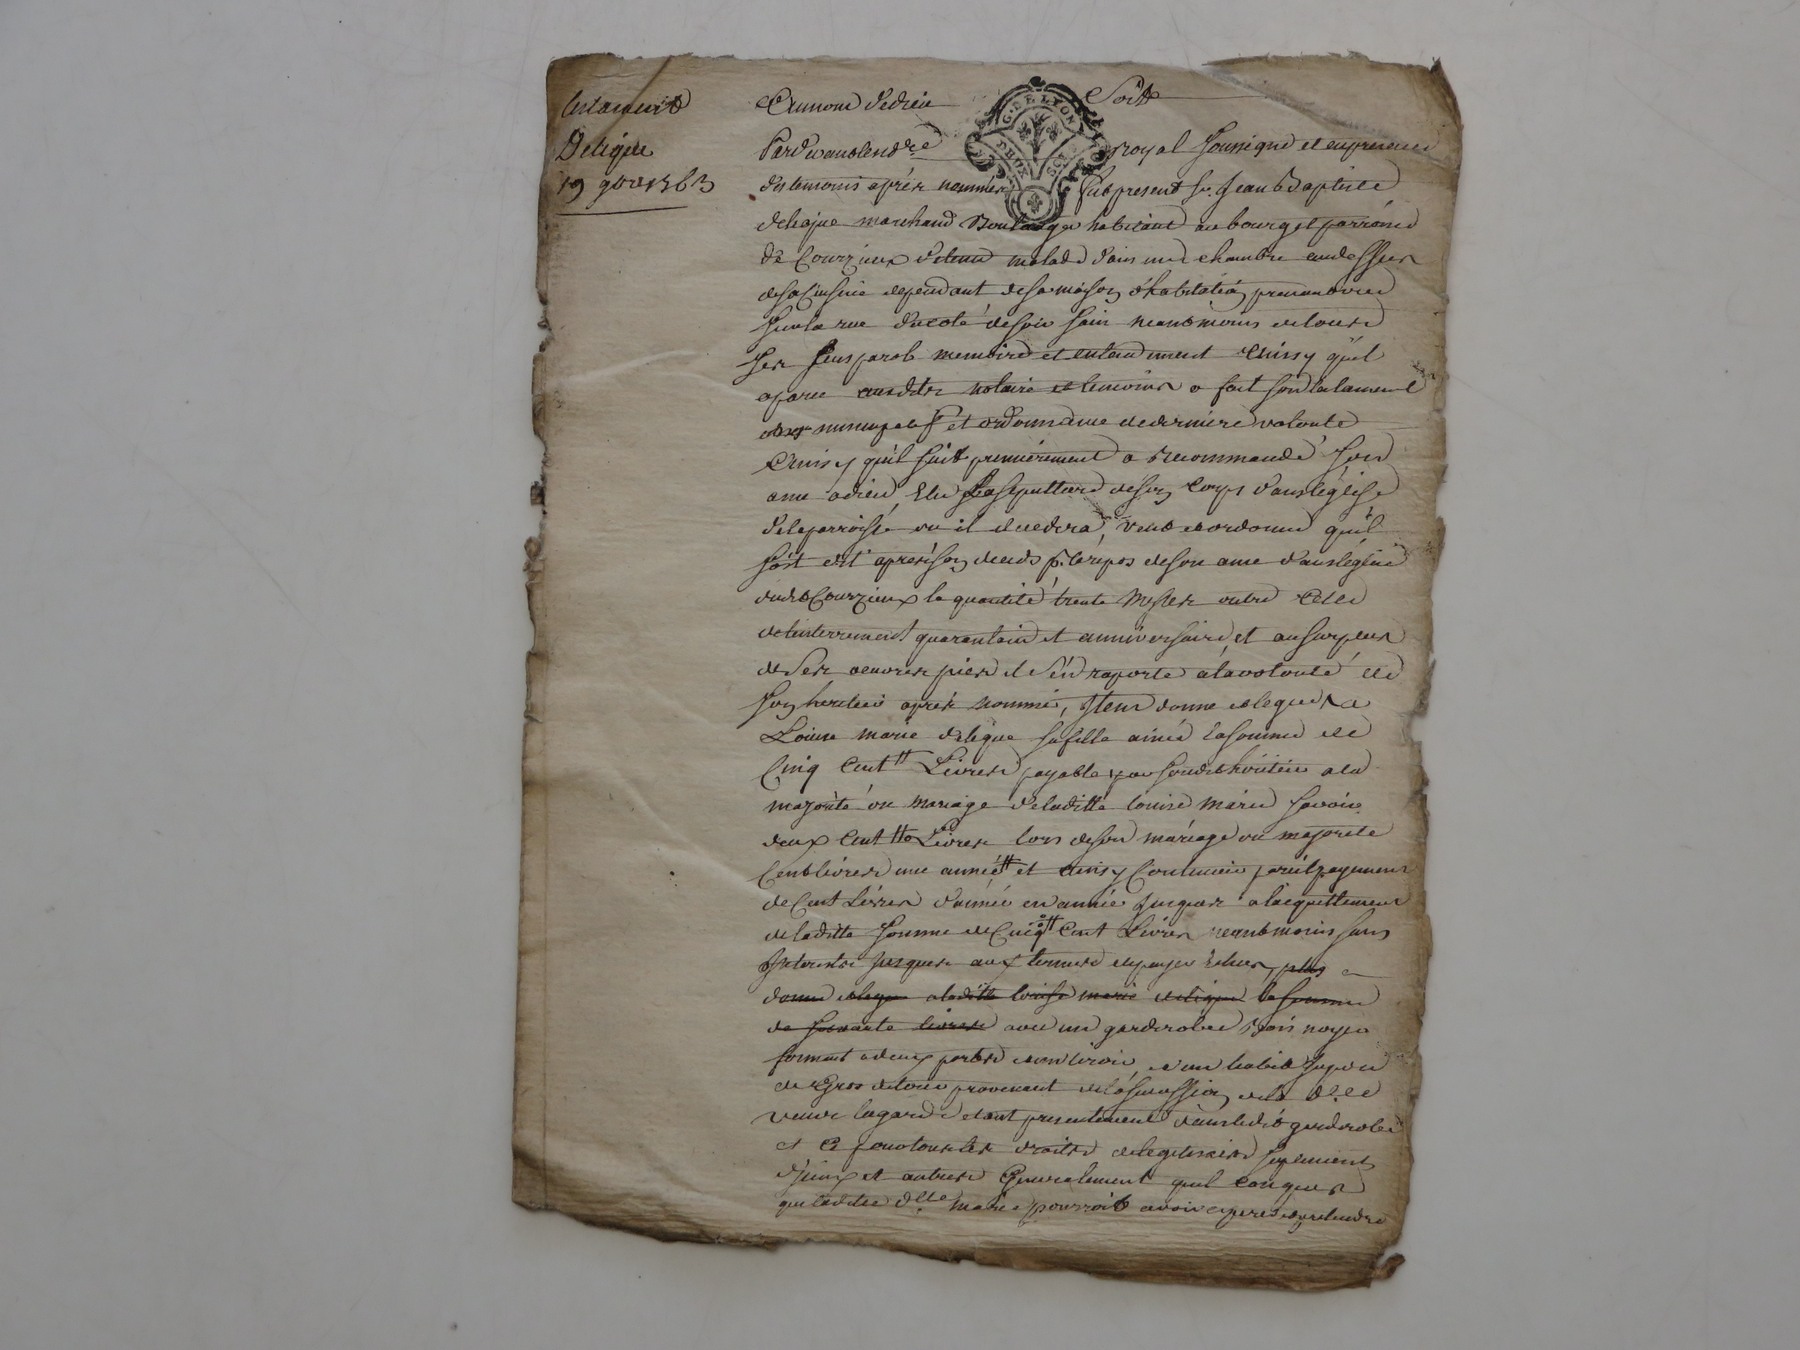 Testament
Deligue
19 9bre 1763
G. DE LYON
DEUX
Au nom de dieu Soit
Pardevant le no.re royal soussigné et en presence
des temoins après nommés fut present Sr. Jean Baptiste
deligue marchand Boulanger habitant au bourg et parroisse
de Courzieux detenu malade dans une chambre au dessus
de sa cuisine dependant de sa maison d'habitation prenant vue
sur la rue du coté de soir sain neantmoins de tous
ses sens parole memoire et entendement ainsy qu'il
a paru auxdits notaire et temoins a fait son testament
nuncupatif et ordonnance de derniere volonté
ainsy qu'il suit premièrement a recommandé son
ame a dieu, Elu sa sepulture de son corps dans l'église
de la parroisse ou il decedera, veut et ordonne qu'il
soit dit après son decès p. le repos de son ame dans l'église
dudit Courzieux la quantité trente Messes outre celles
de l'enterrement quarantaine et anniversaire, et au surplus
de ses oeuvres pies il s'en raporte a la volonté de
son heritier après nommé, Item donne et legue a
Louise marie deligue sa fille ainée la somme de
Cinq Cent tt Livres payable par sondit héritier a la
majorité ou mariage de laditte louise marie savoir
deux Cent tt Livres lors de son mariage ou majorité
Cent livres une année et ainsy Continuer pareil payement
de Cent Livres d'année en année jusques a l'acquittement
de laditte somme de Cinq Cent Livres neantmoins sans
Interets jusques aux termes de payer échus, plus
donne et legue a laditte louise marie deligue la somme
de soixante livres avec une garderobe Bois noyer
fermant a deux portes et un tiroir, et un habit jupon
de Gros de tour provenant de la succession de la D.lle
veuve lagarde etant presentement dans ledit garderobe
et Ce pour tous les droits de legitimaire suplement
d'iceux et autres Generalement quelconques
que laditte d.lle marie pourroit avoir esperer et pretendre